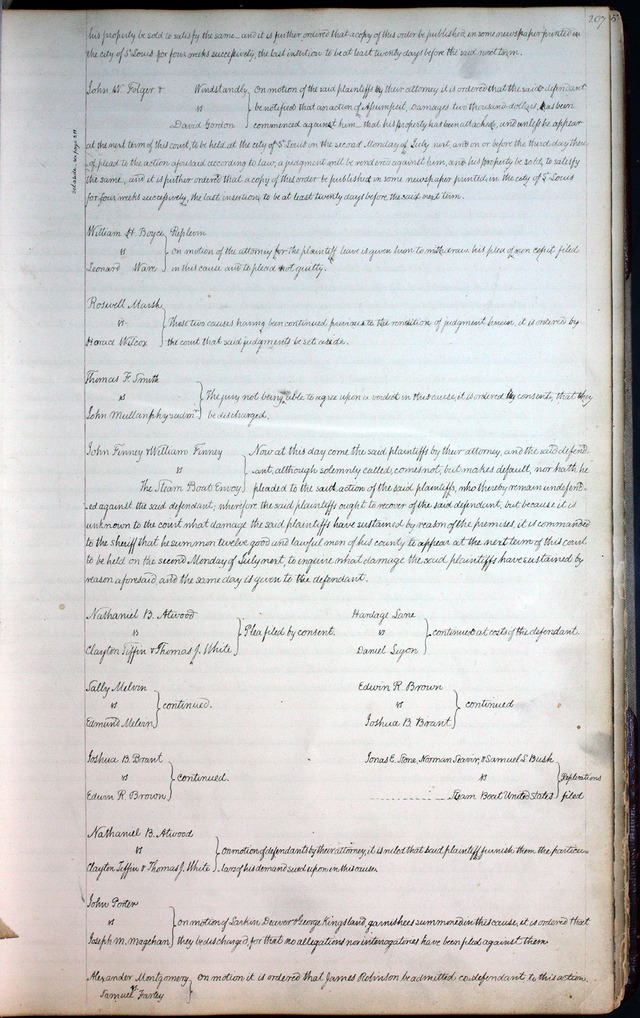 207
his property be sold to satisfy the same, and it is further ordered that a copy of this order be published in some newspaper printed in
the city of St Louis for four weeks successively, the last insertion to be at least twenty days before the said next term.
John W. Folger & Windstandly
vs
David Gordon
on motion of the said plaintiffs by their attorney it is ordered that the said defendant
be notified that an action of Assumpsit, Damages two thousand dollars, has been
commenced against him, that his property has been attached, and unless he appear
at the next term of this court, to be held at the city of St Louis on the second Monday of July next, and on or before the third day thereof
plead to the action aforesaid according to law, a judgment will be rendered against him, and his property be sold, to satisfy
the same, and it is further ordered that a copy of this order be published in some newspaper printed in the city of St Louis
for four weeks successively, the last insertion to be at least twenty days before the said next term.
set aside. see page 211
William H. Boyce
vs
Leonard Ware
Replevin
on motion of the attorney for the plaintiff leave is given him to withdraw his plea of non cepit, filed
in this cause and to plead not guilty.
Roswell Marsh
vs
Horace Wilcox
These two causes having been continued previous to the rendition of judgment herein, it is ordered by
the court that said judgments be set aside.
Thomas F. Smith
vs
John Mullanphy
The jury not being able to agree upon a verdict in this cause, it is ordered by consent, that they
be discharged.
John Finney & William Finney
vs
The Steam Boat Envoy
Now at this day come the said plaintiffs by their attorney, and the said defend-
ant, although solemnly called, comes not, but makes default, nor hath he
pleaded to the said action of the said plaintiffs, who thereby remain undefend-
ed against the said defendant; wherefor the said plaintiffs ought to recover of the said defendant, but because it is
unknown to the court what damage the said plaintiffs have sustained by reason of the premises, it is commanded
to the sheriff that he summon twelve good and lawful men of his county to appear at the next term of this court
to be held on the second Monday of July next, to enquire what damage the said plaintiffs have sustained by
reason aforesaid, and the same day is given to the defendant.
Nathaniel B. Atwood
vs
Clayton Tiffin & Thomas J. White
Plea filed by consent.
Hardage Lane
vs
Daniel Lyon
continued at costs of the defendant.
Sally Melvin
vs
Edmund Melvin
continued.
Edwin R. Brown
vs
Joshua B. Brant
continued
Joshua B. Brant
vs
Edwin R. Brown
continued.
Jonas E. Stone, Norman Seavir, & Samuel S. Bush
vs
Steam Boat United States
Replications
filed
Nathaniel B. Atwood
vs
Clayton Tiffin & Thomas J. White
on motion of defendants by their attorney, it is ruled that said plaintiff furnish them the particu-
lars of his demand sued upon in this cause.
John Porter
vs
Joseph M. Magehan
on motion of Larkin Deaver & George Kingsland, garnishees summoned in this cause, it is ordered that
they be discharged, for that no allegations nor interogatories have been filed against them
Alexander Montgomery
vs
Samuel Farley
on motion it is ordered that James Robinson be admitted co-defendant to this action.